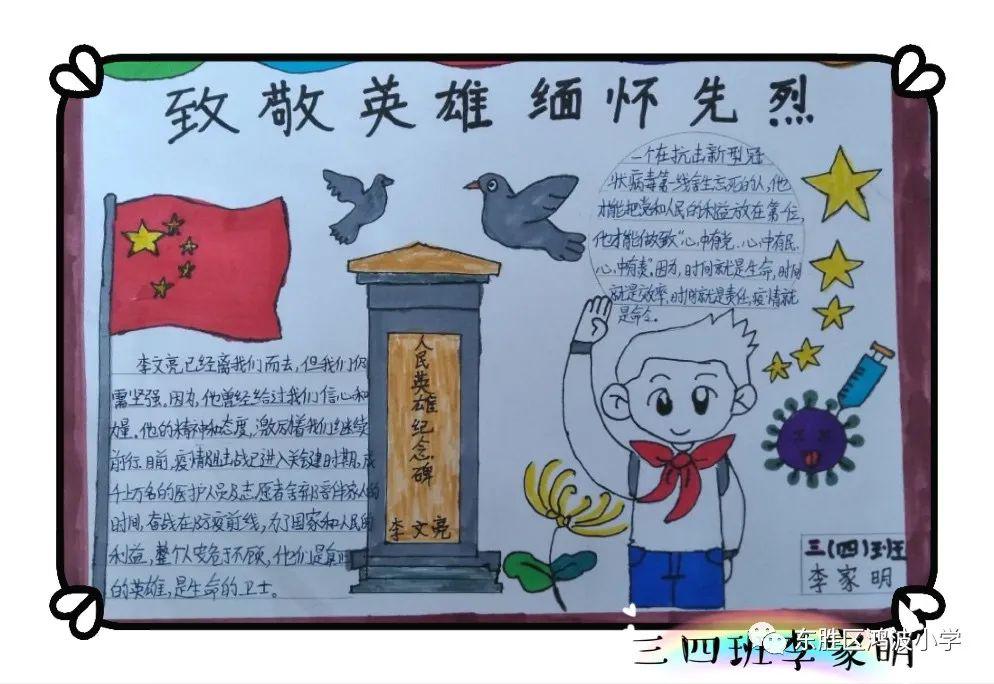 致敬英雄 缅怀先烈
一个在抗击新型冠
状病毒第一线舍生忘死的人,他
才能把党和人民的利益放在第一位,
他才能做致“心中有党、心中有民、
心中有责”。因为,时间就是生命,时间
就是效率,时间就是责任,疫情就
是命令。
李文亮已经离我们而去,但我们仍
需坚强。因为,他曾经给过我们信心和
力量。他的精神和态度,激励着我们继续
前行。目前,疫情阻击战已进入关键时期。成
千上万名的医护人员及志愿者舍弃陪伴家人的
时间,奋战在防疫前线,为了国家和人民的
利益,整个人安危于不顾,他们是真正
的英雄,是生命的卫士。
人民英雄纪念碑
李文亮
三(四)班
李家明
三四班李家明
东胜区鸿波小学